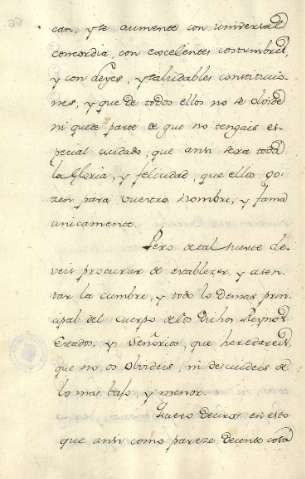 can, y se aumente con universal
concordia, con excelentes costumbres,
y con Leyes, y saludables constitucio-
nes, y que de todos ellos no se olvide
ni quede parte de que no tengais es-
pecial cuidado, que ansi sera toda
la Gloria, y felicidad, que ellos go-
zen para vuestro nombre, y fama
unicamente.
Pero de tal suerte de-
veis procurar de establezer, y asen-
tar la cumbre, y todo lo Demas prin-
cipal del cuerpo de los Dichos Reynos
Estados, y Señorios, que heredareis,
que no os olvideis, ni descuideis de
lo mas bajo, y menor.
Quiero Deciros en esto
que ansi como pareze Decente cosa